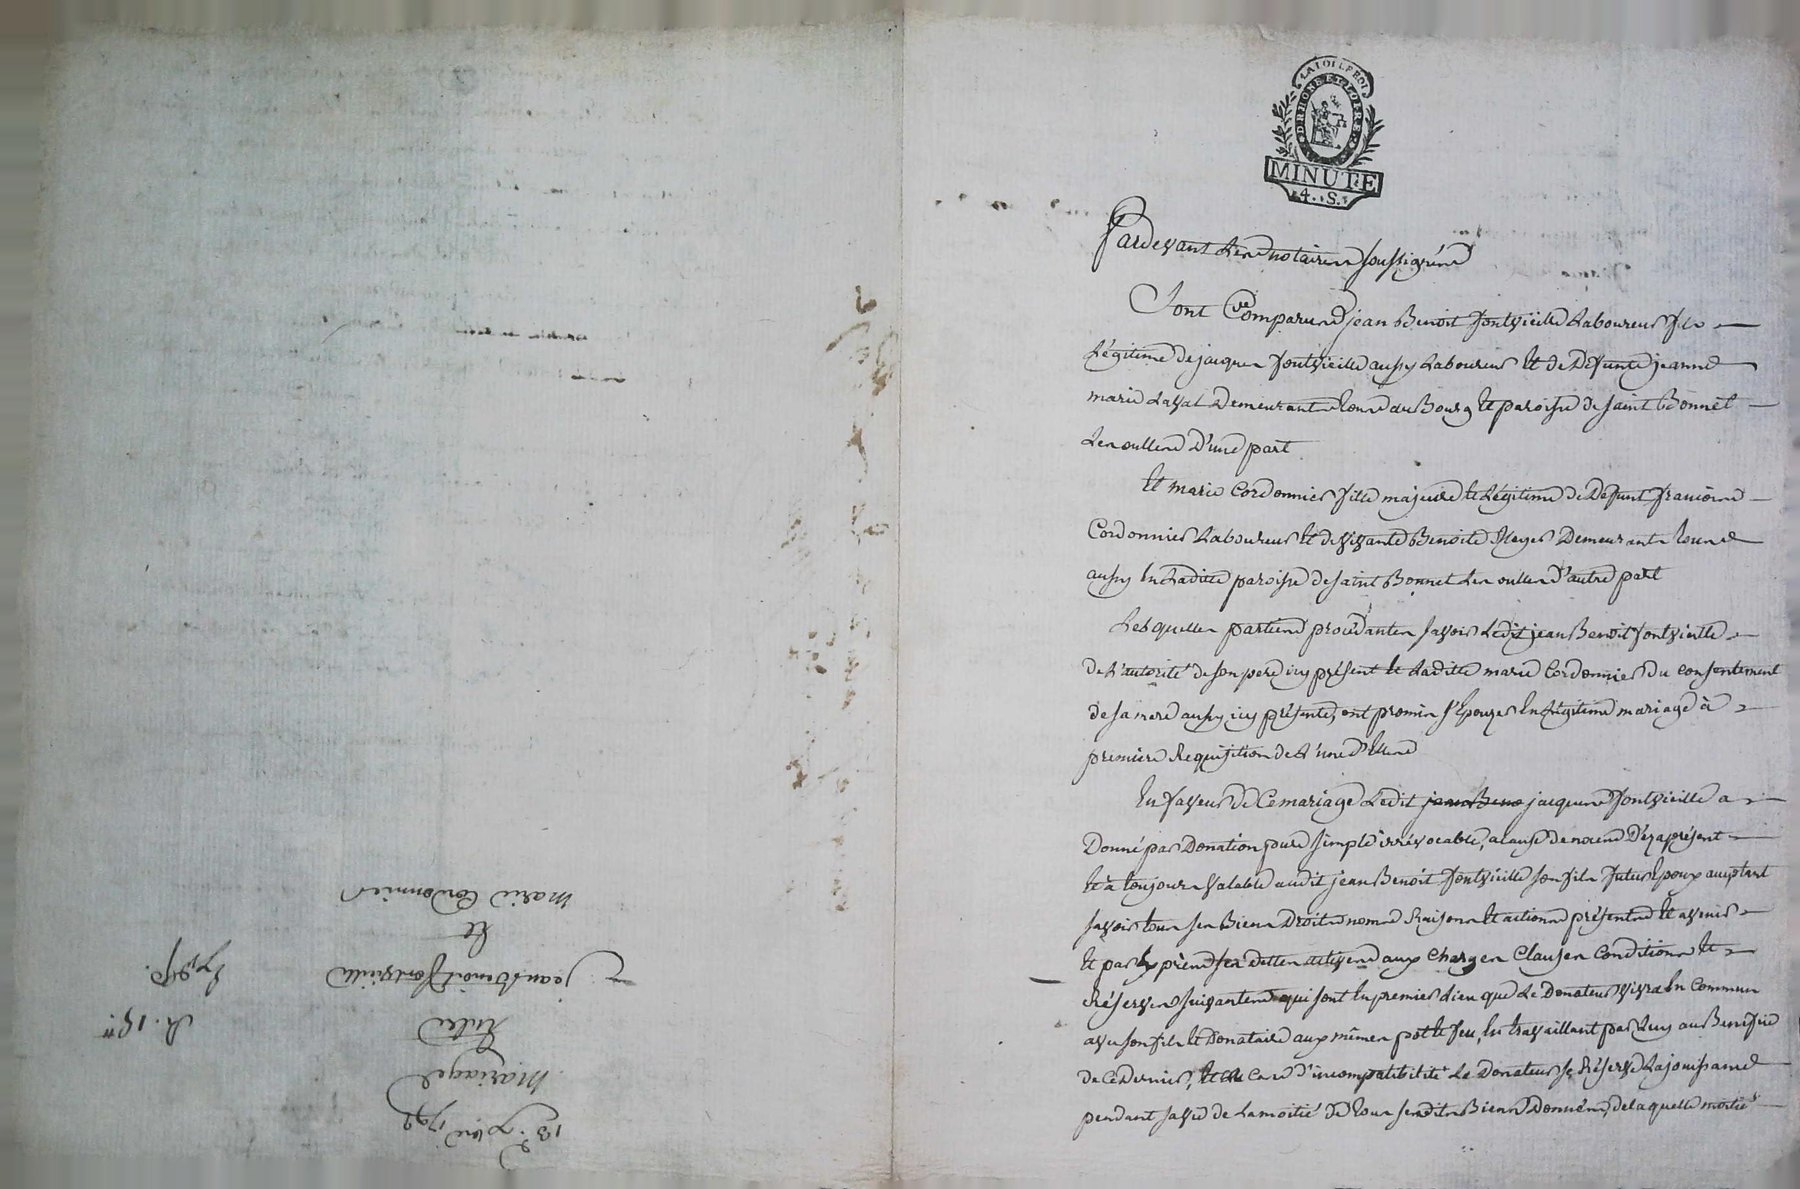 LA LOI LE ROI
D. RHONE ET LOIRE
MINUTE
4. S.
Pardevant Les notaires soussignés
Sont Comparus jean Benoit fontvieille Laboureur fils
Légitime de jacques fontvieille aussy Laboureur et de Defunte jeanne
marie Laval Demeurants tous au Bourg et paroisse de saint Bonnet
Les oulles D'une part
Et marie Cordonnier fille majeure et Légitime de Defunt françois
Cordonnier Laboureur et de vivante Benoite Demeurants tous
aussy en Laditte paroisse de saint Bonnet Les oulles d'autre part
Lesquelles parties procédantes savoir Ledit jean Benoit fontvieille
de L'autorité de son pere icy présent et Laditte marie Cordonnier du consentement
de sa mere aussy icy présente, ont promis s'Epouser En Légitime mariage à
premiere Requisition de L'une d'Elles
En faveur de Ce mariage Ledit jean Beno jacques fontvieille a
Donné par Donation pure simple irrévocable, a cause de noces Dès a présent
et à toujours valable audit jean Benoit fontvieille son fils futur Epoux acceptant
savoir tous ses Biens Droits noms Raisons et actions présents et avenir
et par Exprès ses dettes actives aux Charges Clauses Conditions et
Réserves suivantes qui sont En premier Lieu que Le Donateur vivra En Commun
avec son fils Le Donataire aux mêmes pot et feu, En travaillant par Luy au Benefice
de ce Dernier, et En Cas d'incompatibilité Le Donateur se Réserve La jouissance
pendant sa vie de La moitié de tous sesdits Biens Donnés, de laquelle moitié
18e 1792
Mariage
Entre
jean Benoit fontvieille
Et
Marie Cordonnier
R. 15"
Exp.